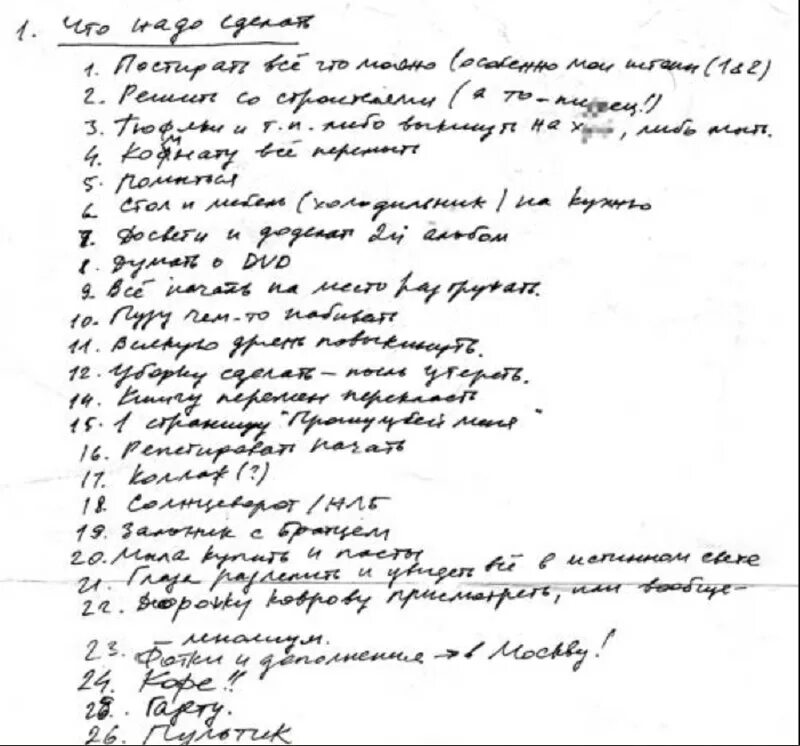 1. Что надо сделать
1. Постирать всё что можно (особенно мои штаны (1&2)
2. Решить со строителями (а то-пи ец!)
3. Тюфяки и т.п. либо выкинуть на х , либо мыть.
4. Комнату всё перемыть
5. Помыться
6. Стол и мебель (холодильник) на кухню
7. и доделать 2й альбом
8. Думать о DVD
9. Всё начать на место разгружать.
10. Пузу чем-то набивать
11. Всякую дрянь повыкинуть.
12. Уборку сделать - пыль утереть.
14. Книгу перемен
15. 1 страницу "Прошу убей меня"
16. Репетировать начать
17. Коллаж (?)
18. Солнцеворот / НЛБ
19. с Братцем
20. Мыла купить и пасты
21. Глаза разлепить и увидеть всё в истинном свете
22. Дорожку коврову присмотреть, или вообще-
- линолиум.
23. Фотки и дополнения → в Москву!
24. Кофе!!
25. Газету.
26. Пультик